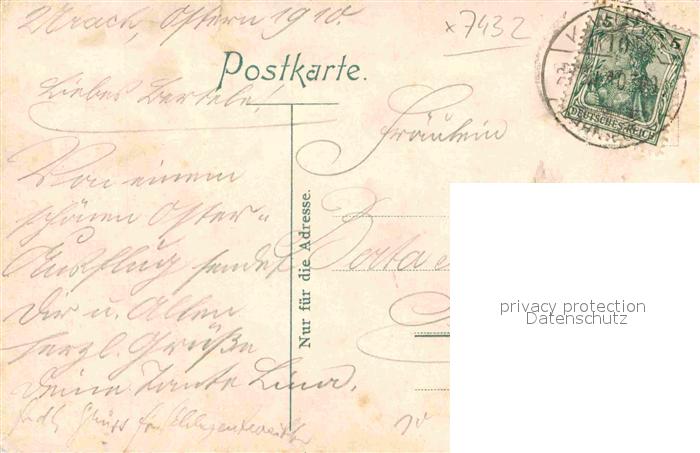 Urach, Ostern 1910.
x7432
Postkarte.
Liebes Bertele!
Fräulein
5 5
DEUTSCHES REICH
Von einem
schönen Oster-
Ausflug sendet
Dir u. Allen
herzl. Grüße
Deine Tante Lina.
Nur für die Adresse.
Berta
privacy protection
Datenschutz